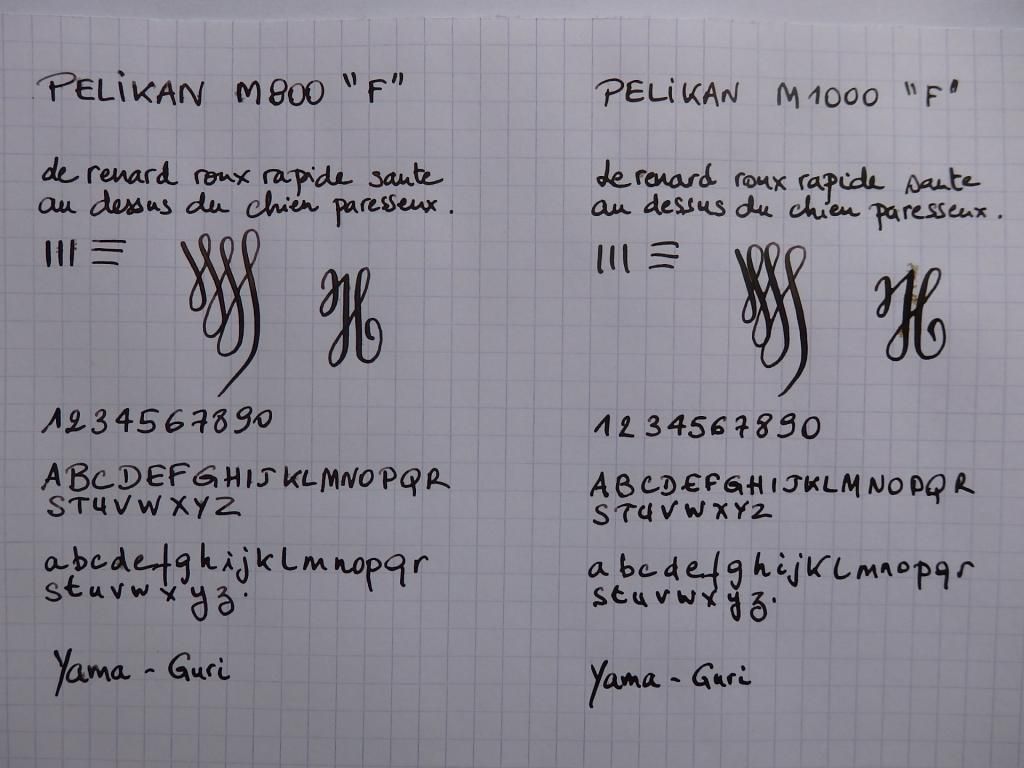 PELiKAN M800 "F"
de renard roux rapide saute
au dessus du chien paresseux.
H
1234567890
ABCDEFGHIJKLMNOPQR
STUVWXYZ
abcdefghijklmnopqr
stuvwxyz.
Yama - Guri
PELiKAN M1000 "F"
de renard roux rapide saute
au dessus du chien paresseux.
H
1234567890
ABCDEFGHIJKLMNOPQR
STUVWXYZ
abcdefghijklmnopqr
stuvwxyz.
Yama - Guri